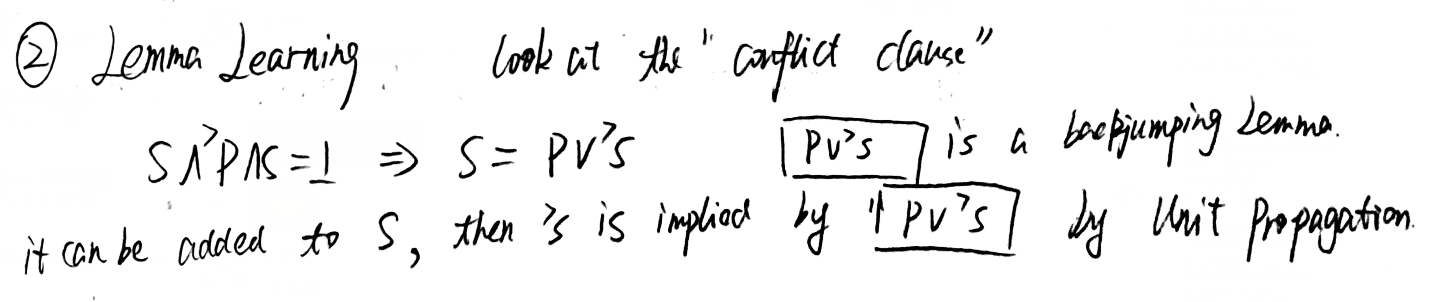 ② Lemma Learning. look at the "conflict clause"
S∧¬P∧S=⊥ ⇒ S= P∨¬S P∨¬S is a backjumping Lemma.
it can be added to S, then ¬S is implied by " P∨¬S by Unit Propagation.